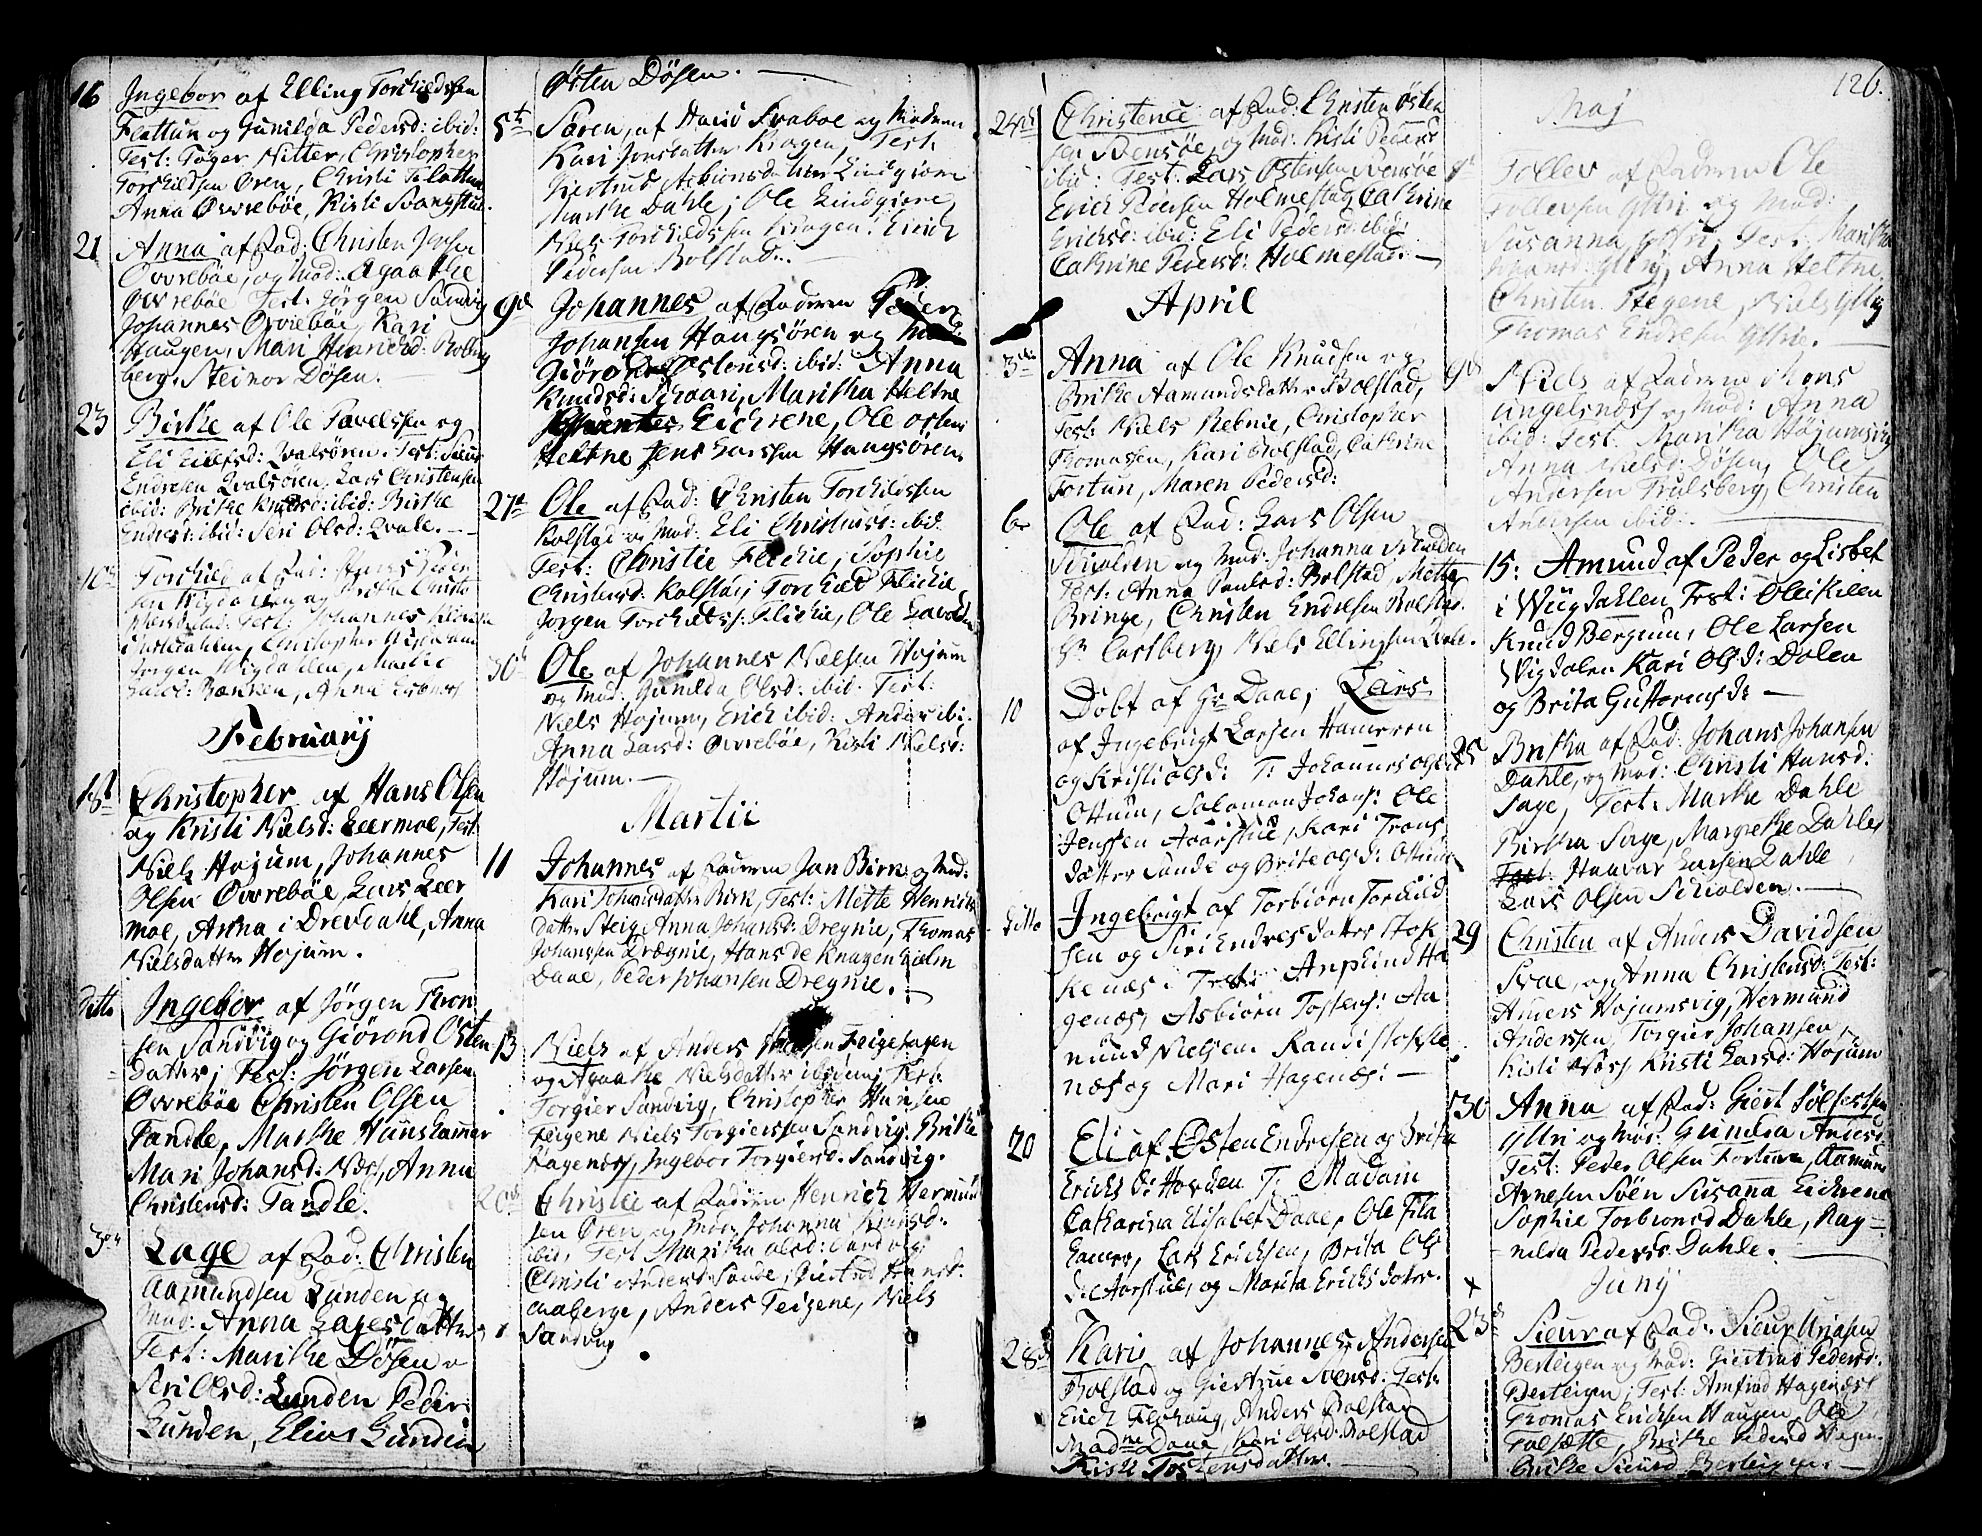 16 Ingebor af Elling Torchildsen
Flattun og Gunilda Pedersd: ibid:
Test: Töger Nitter, Christopher
Torchildsen Øren, Christi Flattun
Anna Ovrebøe, Kisti Bangstue.
21 Anna af Fad: Christen Jensen
Ovrebøe, og Mod: Agaathe
Ovrebøe Test: Jörgen Sandvig
Johannes Ovrebøe, Kari
Haugen, Mari Henrichsd: Rolling
berg, Steinor Dösen.
23 Birthe af Ole Pavelsen og
Eli Eilefsd: Qvalsören. Test: Siur
Endresen Qvalsören, Lars Christensen
ibid: Brithe Knudsd: ibid: Birthe
Endresd: ibid: Seri Olsd: Qvale.
Torchild af Fad:
Februarij
Christopher af Hans Olsen
og Kristi Nielsd: Leermoe, Test:
Niels Højum, Johannes
Olsen Ovrebøe, Lars Leer
moe, Anna i Drevdahl, Anna
Nielsdatter Højum.
ditto Ingebor af Jörgen Thron
sen Sandvig og Giörond Østen
datter, Test: Jörgen Larsen
Ovrebøe Christen Olsen
Tandle, Marthe Hunshamer
Mari Johansd: Næss, Anna
Christensd: Tandle.
Lage af Fad: Christen
Aamundsen Lunden og
Mod: Anna Lagesdatter
Test: Marithe Dösen
Seri Olsd: Lunden Peder
Lunden, Elias Lunden
Østen Dösen.
5t Søren, af Hans Svaboe og Modren
Kari Jonsdatter Kragen, Test:
Giertrud Lindgiore
Marthe Dahle, Ole Lindgiore,
Niels Torchildssen Kragen. Erich
Pedersen Bolstad.
9d Johannes af Fadren Peder
Johansen Haugsören og Mod
Giörond Ostensd: ibid: Anna
Knudsd: Maritha Heltne
Eichrene, Ole osten
Heltne Jens Larssen Haugsören.
27t Ole af Fad: Christen Torchildssen
Kolstad og Mod: Eli Christensd: ibid
Test: Christie Flichie, Sophie
Christensd: Kolstad, Torchild Flichie
Jörgen Torchildss: Flichie, Ole
30t Ole af Johannes Nielsen Højum
og Mod: Gunilda Olsd: ibid. Test:
Niels Højum, Erich ibid: Anders ibi.
Anna Larsd: Ovrebøe, Kisti Nielsd:
Højum.
Martii
11 Johannes af Fadren Jan Birk: og Mod:
Kari Johansdatter Birk, Test: Mette Henrichs
datter Steig Anna Johansd: Dregnie, Thomas
Johansen Drægnie, Hans de Knagenhielm
Daae, Peder Johansen Dregnie.
13 Niels af Anders Feigesagen
og Agaathe Nielsdatter ibidem, Test:
Torgier Sandvig, Christopher Hansen
Feigene Niels Torgierssen Sandvig. Brithe
Hagenæss, Ingebor Torgiersd. Sandvig.
20 Christie af Fadren Henrich Hermund
sen Øren og Mod: Johanna
ibid, Test Maritha Olsd: Sandvig
Christi Andersd: Sande, Giertrud
Aaberge, Anders Feigene, Niels
Sandvig
24 Christence af Fad: Christen Østen
sen Svensøe, og Mod: Kisti Pedersd
ibid: Test: Lars Østensen Svensøe
Erich Pedersen Holmestad, Cathrine
Erichsd: ibid: Eli Pedersd: ibid:
Cathrine Pedersd: Holmestad.
April
3die Anna af Ole Knudsen og
Brithe Aamundsdatter Bolstad,
Test: Niels Rebnie, Christopher
Thomassen, Kari Bolstad, Cathrine
Fortun, Maren Pedersd:
6te Ole af Fad: Lars Olsen
Skiolden og Mod: Johanna Skiolden
Test: Anna Paulsd: Bolstad, Mette
Bringe, Christen Endresen Bolstad.
Hr Castberg, Niels Ellingsen Qvale.
10 Døbt af Hr Daae, Lars
af Ingebrigt Larsen Hameren
og Kristi Olsd: T: Johannes Olsen
Ottum, Salomon Johans: Ole
Jenssen Aaarstue, Kari Trons
datter Sande og Brite Olsd: Ottum
ditto Ingebrigt af Torbiörn Torkild
sen og Siri Endresdatter Stok
kenæs: Test: Ha
genæs, Asbiörn Tostens: Aa
mund Nielsen Randi Stokke
næs og Mari Hagenæs:
20 Eli af Østen Endresen og Brita
Erichsd: Hovden T. Madam
Catharina Elisabet Daae, Ole Fila
hamer, Lars Erichsen, Brita Ols
d: Aarstue, og Marita Erichsdater.
28de Karie af Johannes Andersen
Bolstad og Giertrue Svensd: Test:
Erich Flohaug, Anders Bolstad
Madme Daae, Kari Olsd: Bolstad
Kisti Tostensdatter.
126.
Maj
Tollev af Fadren Ole
Tollevsen Yttri og Mod:
Susanna Yttri, Test: Marithe
Yttri, Anna Heltne,
Christen Hegene, Niels Yttri
Thomas Endresen Yttrie.
9d Niels af Fadren Mons
Ungelsnæss og Mod: Anna
ibid: Test: Maritha Højumsvig
Anna Nielsd: Dösen, Ole
Andersen Trulsberg, Christen
Andersen ibid.
15: Amund af Peder og Lisbet
i Wiigdahlen Test: Ole Kilen
Knud Bergum, Ole Larsen
Vigdalen Kari Olsd: Dalen
og Brita Guttormsd:
25 Britha af Fad: Johans Johansen
Dahle, og Mod: Christi Hansd:
Sage, Test: Marthe Dahle
Birtha Sage, Margrethe Dahle,
Test: Haavar Larsen Dahle
Lars Olsen Skiolden.
29 Christen af Anders Davidsen
Svae, og Anna Christensd: Test:
Anders Højumsvig, Hermund
Anderssen, Torgier Johansen,
Kisti Næss Kristi Larsd: Højum
30 Anna af Fad: Giert Sölfestsen
Yttri og Mod: Gundla Andersd
Test: Peder Olsen Fortun, Aamund
Arnesen Söen Susanna Eichrene
Sophie Torbionsd Dahle, Rag-
nilda Pedersd: Dahle.
Junij
x
23d Sieur af Fad: Sieur Uriasen
Berteigen og Mod: Giertrud Pedersd:
Berteigen, Test: Amfind Hagenæss
Thomas Erichsen Haugen, Ole
Talsætte, Brithe Pedersd Hagen
Brithe Siursd Berteigen.